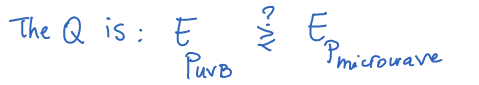 The Q is: E_PUVB ⋛? E_Pmicrowave